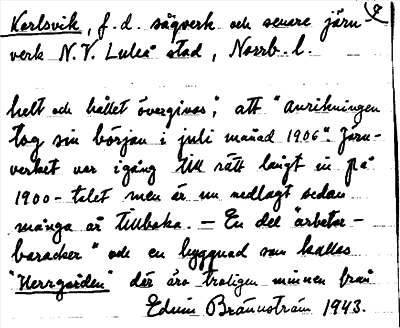 Karlsvik, f.d. sågverk och senare järn-
verk N.V. Luleå stad, Norrb. l.
helt och hållet övergivas", att "anrikningen
tog sin början i juli månad 1906". Järn-
verket var igång till rätt långt in på
1900-talet men är nu nedlagt sedan
många år tillbaka. – En del "arbetar-
baracker" och en byggnad som kallas
"Herrgården" där äro troligen minnen från
Edvin Brännström 1943.